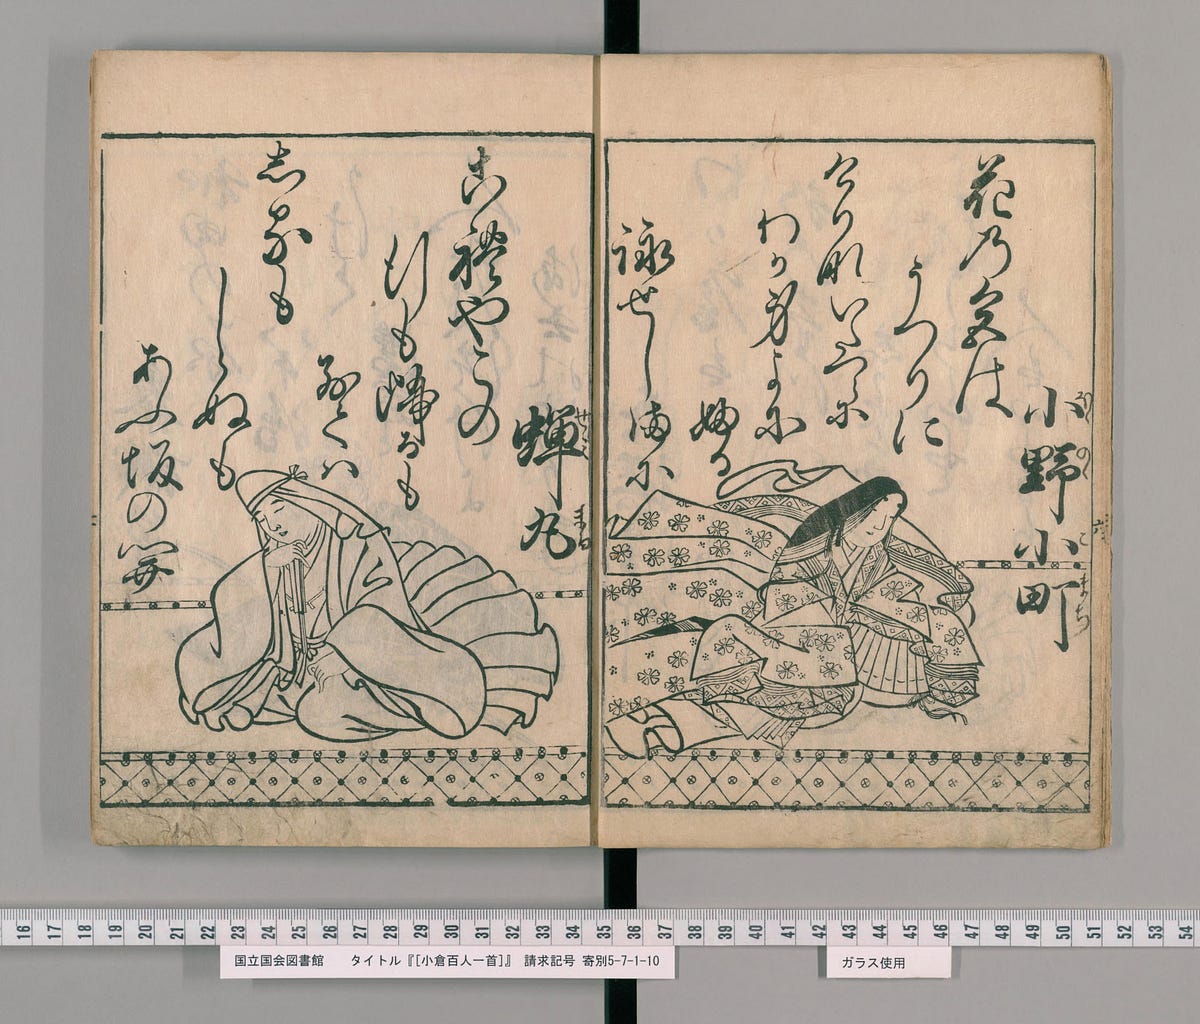 小野小町
をのゝこまち
花乃色は
うつりに
けり那いたつら尓
わか身よ尓
婦る
詠せし満尓
蝉丸
せみまる
古禮やこの
行も帰るも
別てハ
志るも
しらぬも
あふ坂の関
16 17 18 19 20 21 22 23 24 25 26 27 28 29 30 31 32 33 34 35 36 37 38 39 40 41 42 43 44 45 46 47 48 49 50 51 52 53 54
国立国会図書館 タイトル『[小倉百人一首]』 請求記号 寄別5-7-1-10
ガラス使用